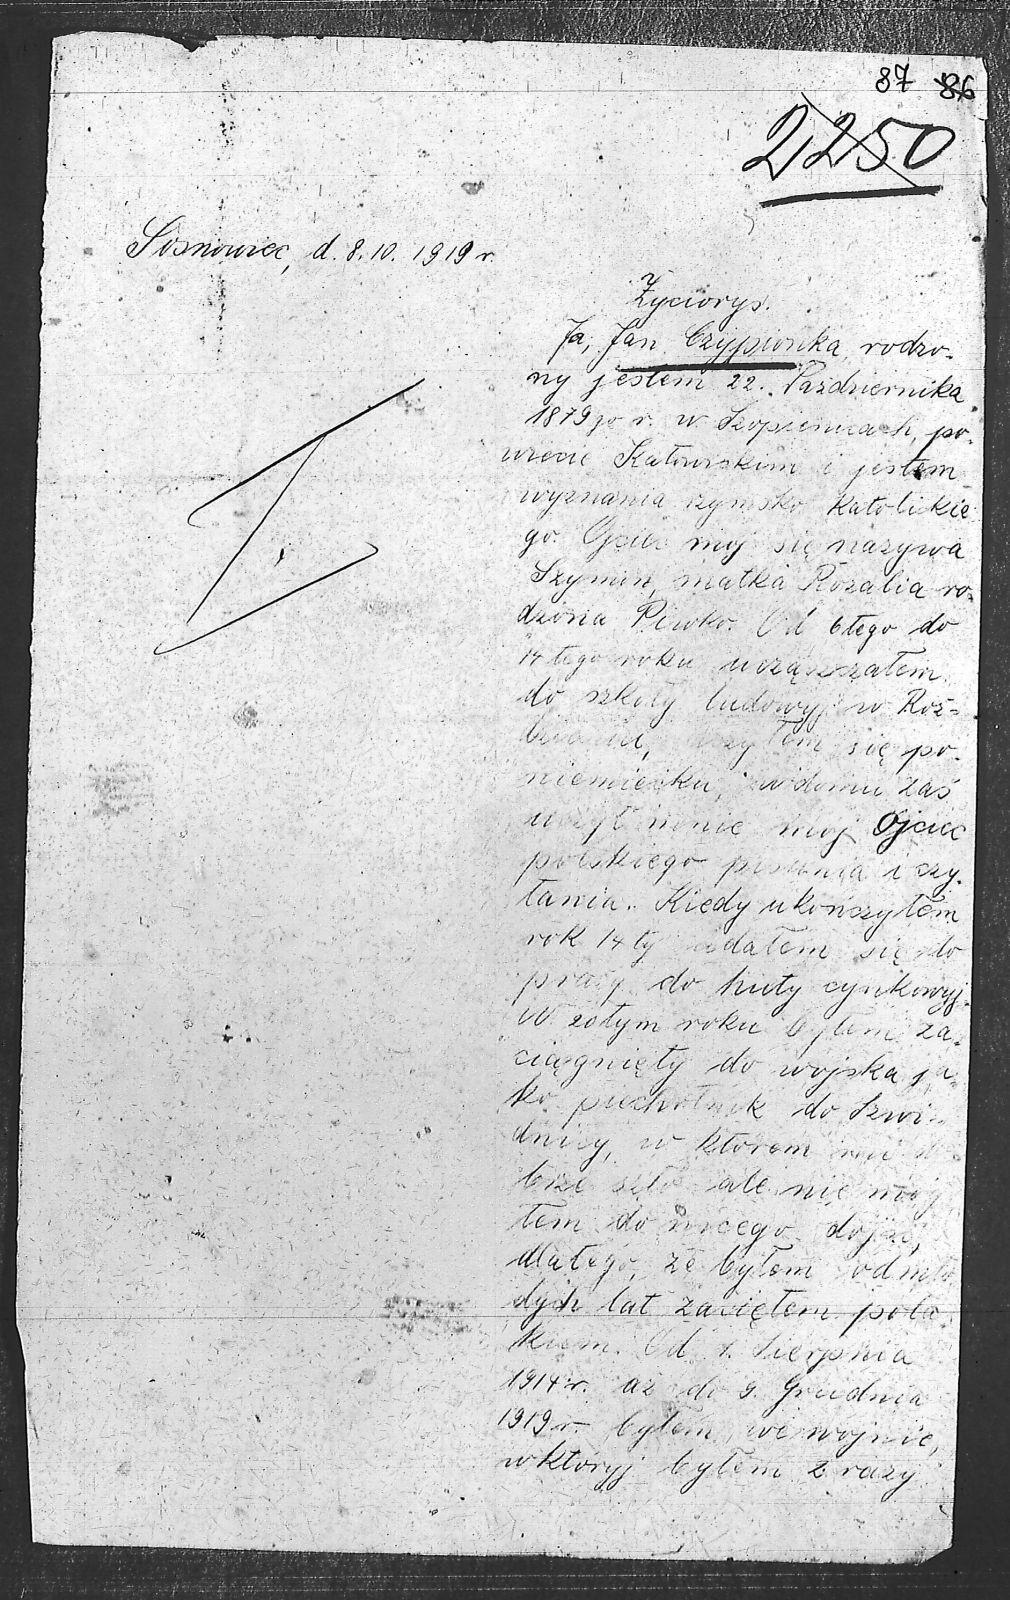 87 86
2250
Sosnowiec, d. 8.10. 1919 r.
Życiorys.
Ja, Jan Czypionka, rodzo-
ny jestem 22. Października
1879go r. w Szopienicach, po-
wiecie Katowskim i jestem
wyznania rzymsko katolickie
go. Ojciec moj się nazywa
Szymon, matka Rozalia ro-
dzona Piwko. Od 6tego do
14tego roku uczączszałem
do szkoły ludowyj w Roz-
uczyłem się po-
niemiecku, w domu zaś
uczył mnie moj Ojciec
polskiego pisania i czy-
tania. Kiedy ukończyłem
rok 14ty udałem się do
pracy do huty cynkowyj.
W 20tym roku byłem za-
ciągnięty do wojska ja-
ko piechotnik do Szwi-
dnicy, w ktorem mi do-
brze szło ale nie mog
łem do niczego dojść,
dlatego, że byłem od mło
dych lat zaciętem pola
kiem. Od 1. Sierpnia
1914 r. aż do 9. Grudnia
1919 r. byłem we wojnie,
w ktoryj byłem 2 razy